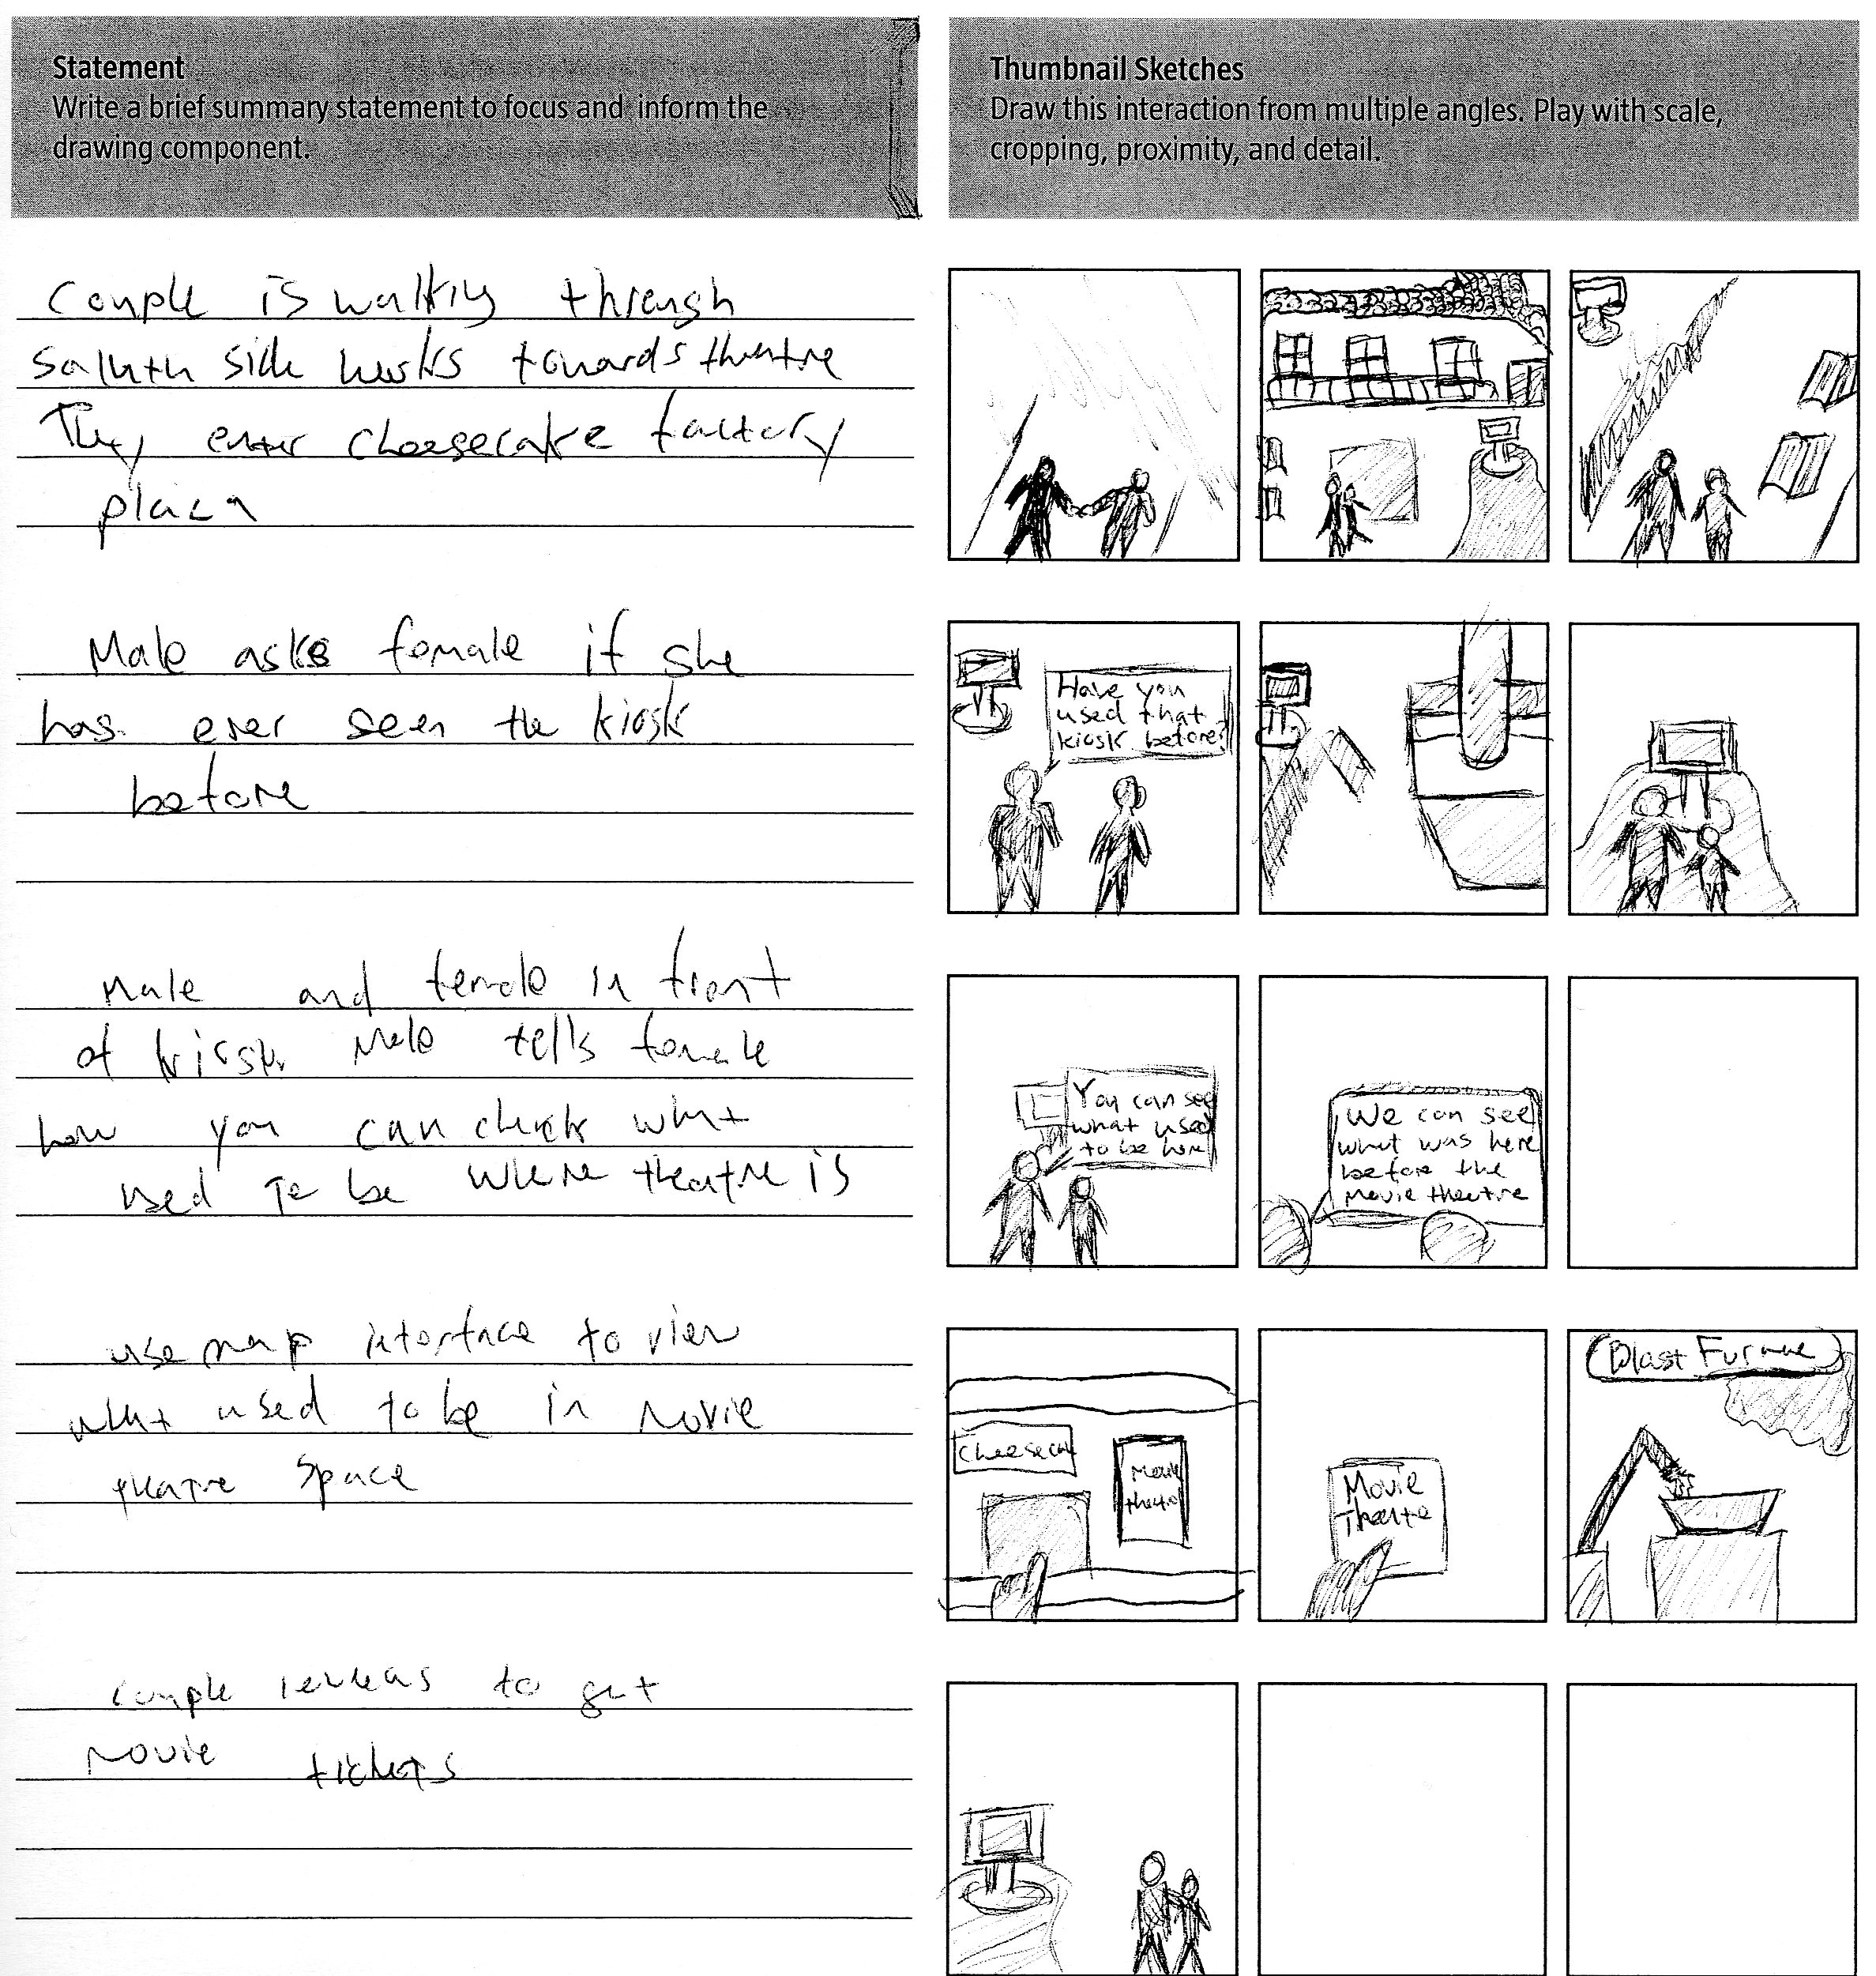 Statement
Write a brief summary statement to focus and inform the
drawing component.
Thumbnail Sketches
Draw this interaction from multiple angles. Play with scale,
cropping, proximity, and detail.
Couple is walking through
side works towards theatre
They enter cheesecake factory
plaza
Male asks female if she
has ever seen the kiosk
before
Have you
used that
kiosk before?
Male and female in front
of kiosk. Male tells female
how you can check what
used to be where theatre is
You can see
what used
to be here
We can see
what was here
before the
movie theatre
use map interface to view
what used to be in movie
theatre space
Cheeseca
Movie
theatre
Movie
Theatre
Blast Furnace
couple to get
movie tickets